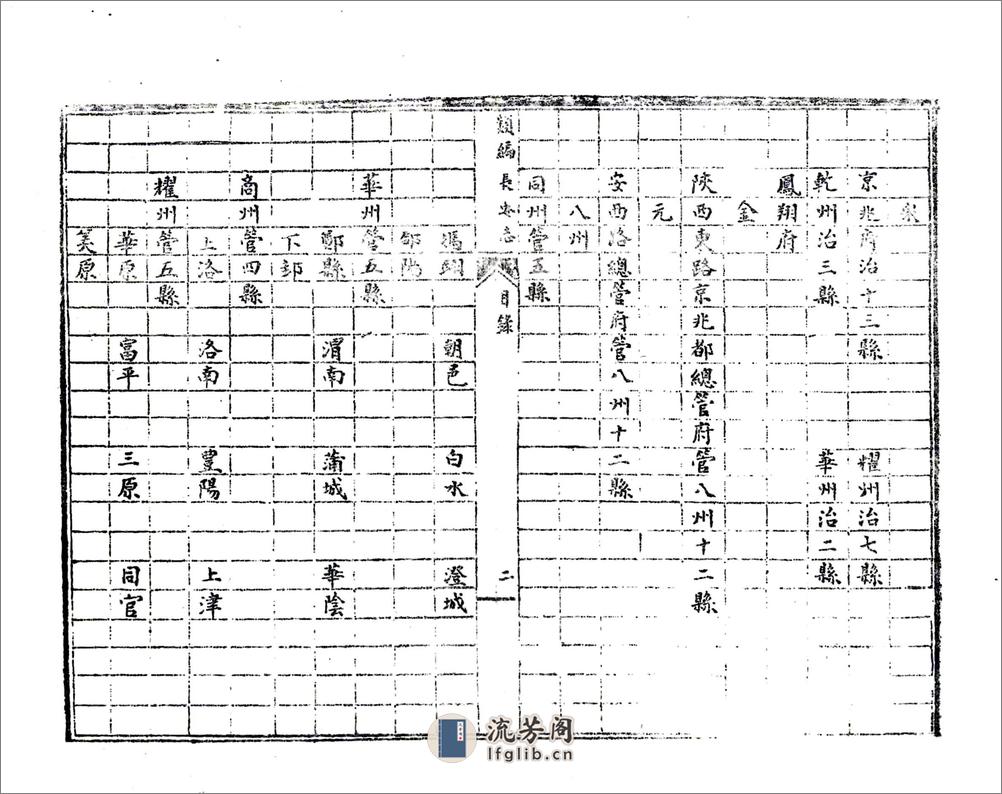 宋
京兆府治十三縣 耀州治七縣
乾州治三縣 華州治二縣
鳳翔府
金
陝西東路京兆都總管府管八州十二縣
元
安西路總管府管八州十二縣
八州
同州管五縣
類編長安志 目錄 二
馮翊 朝邑 白水 澄城
郃陽
華州管五縣
鄭縣 渭南 蒲城 華陰
下邽
商州管四縣
上洛 洛南 豊陽 上津
耀州管五縣
華原 富平 三原 同官
美原
流芳阁
lfglib.cn